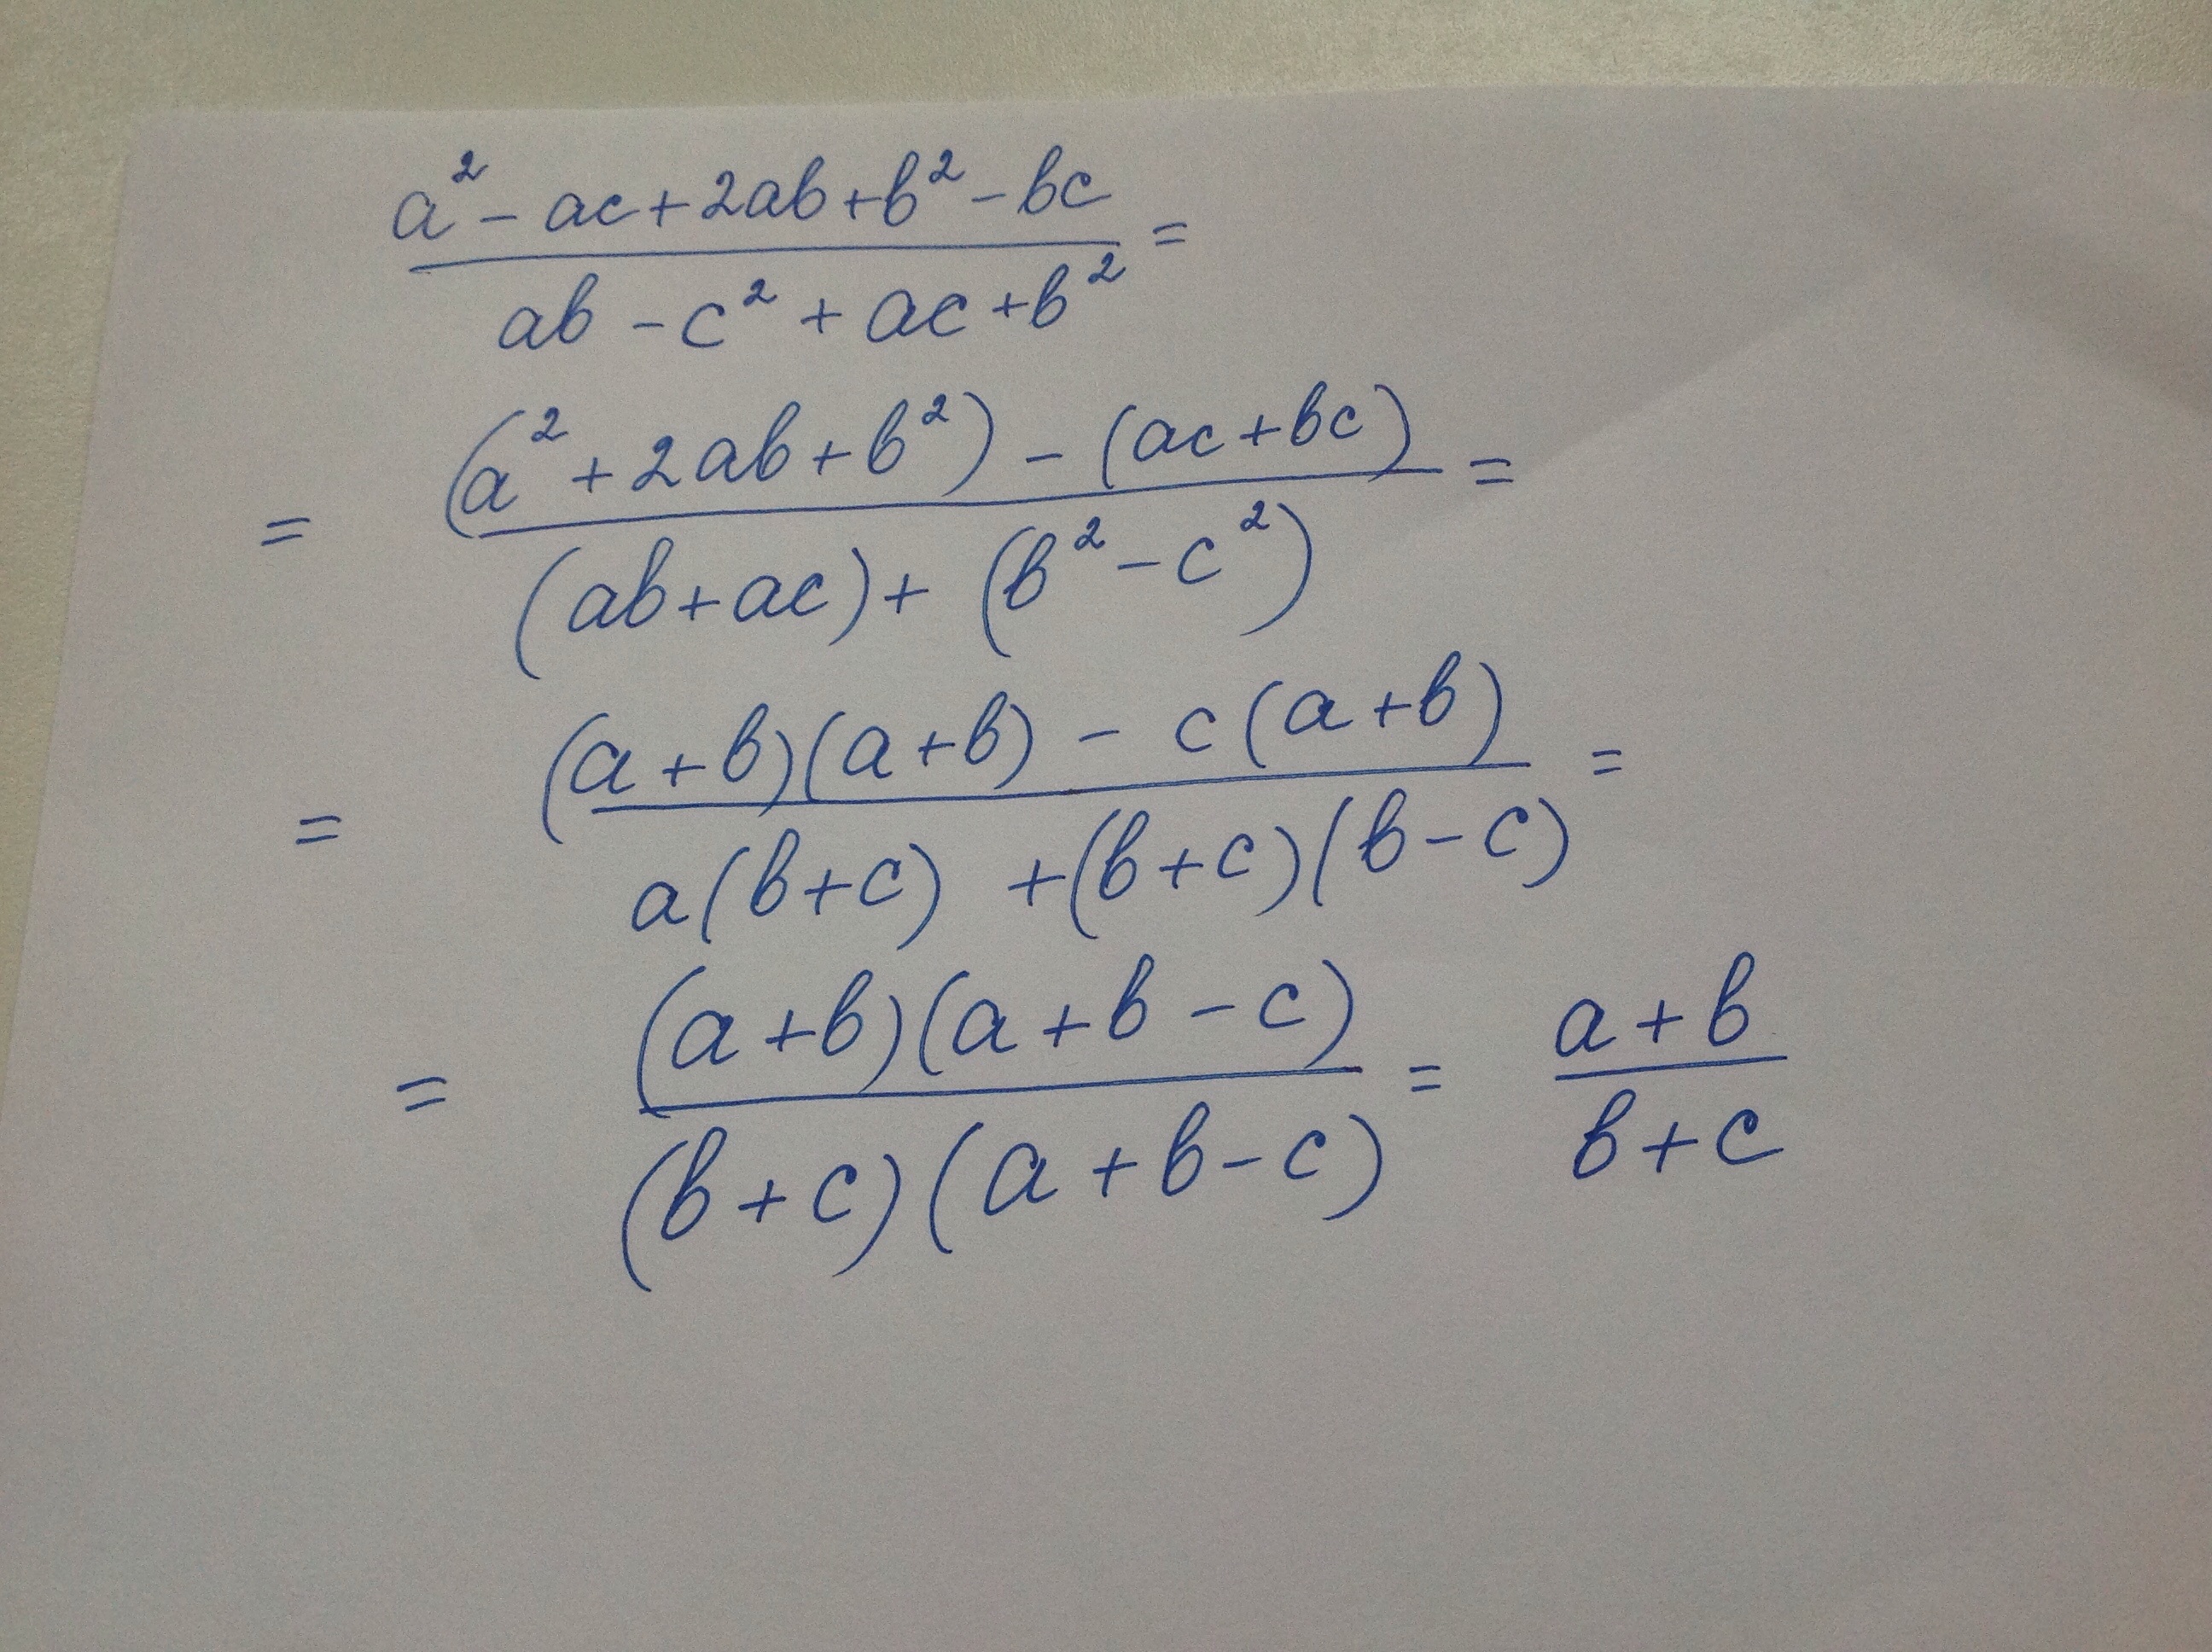 a² - ac + 2ab + b² - bc =
ab - c² + ac + b²
= (a² + 2ab + b²) - (ac + bc) =
(ab + ac) + (b² - c²)
= (a + b)(a + b) - c(a + b) =
a(b + c) + (b + c)(b - c)
= (a + b)(a + b - c) = a + b
(b + c)(a + b - c) b + c